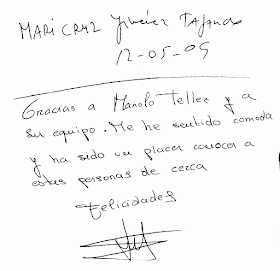 MARI CRUZ Jiménez
12-05-05
Gracias a Manolo Tellez y a
su equipo. Me he sentido comoda
y ha sido un placer conocer a
estas personas de cerca
Felicidades